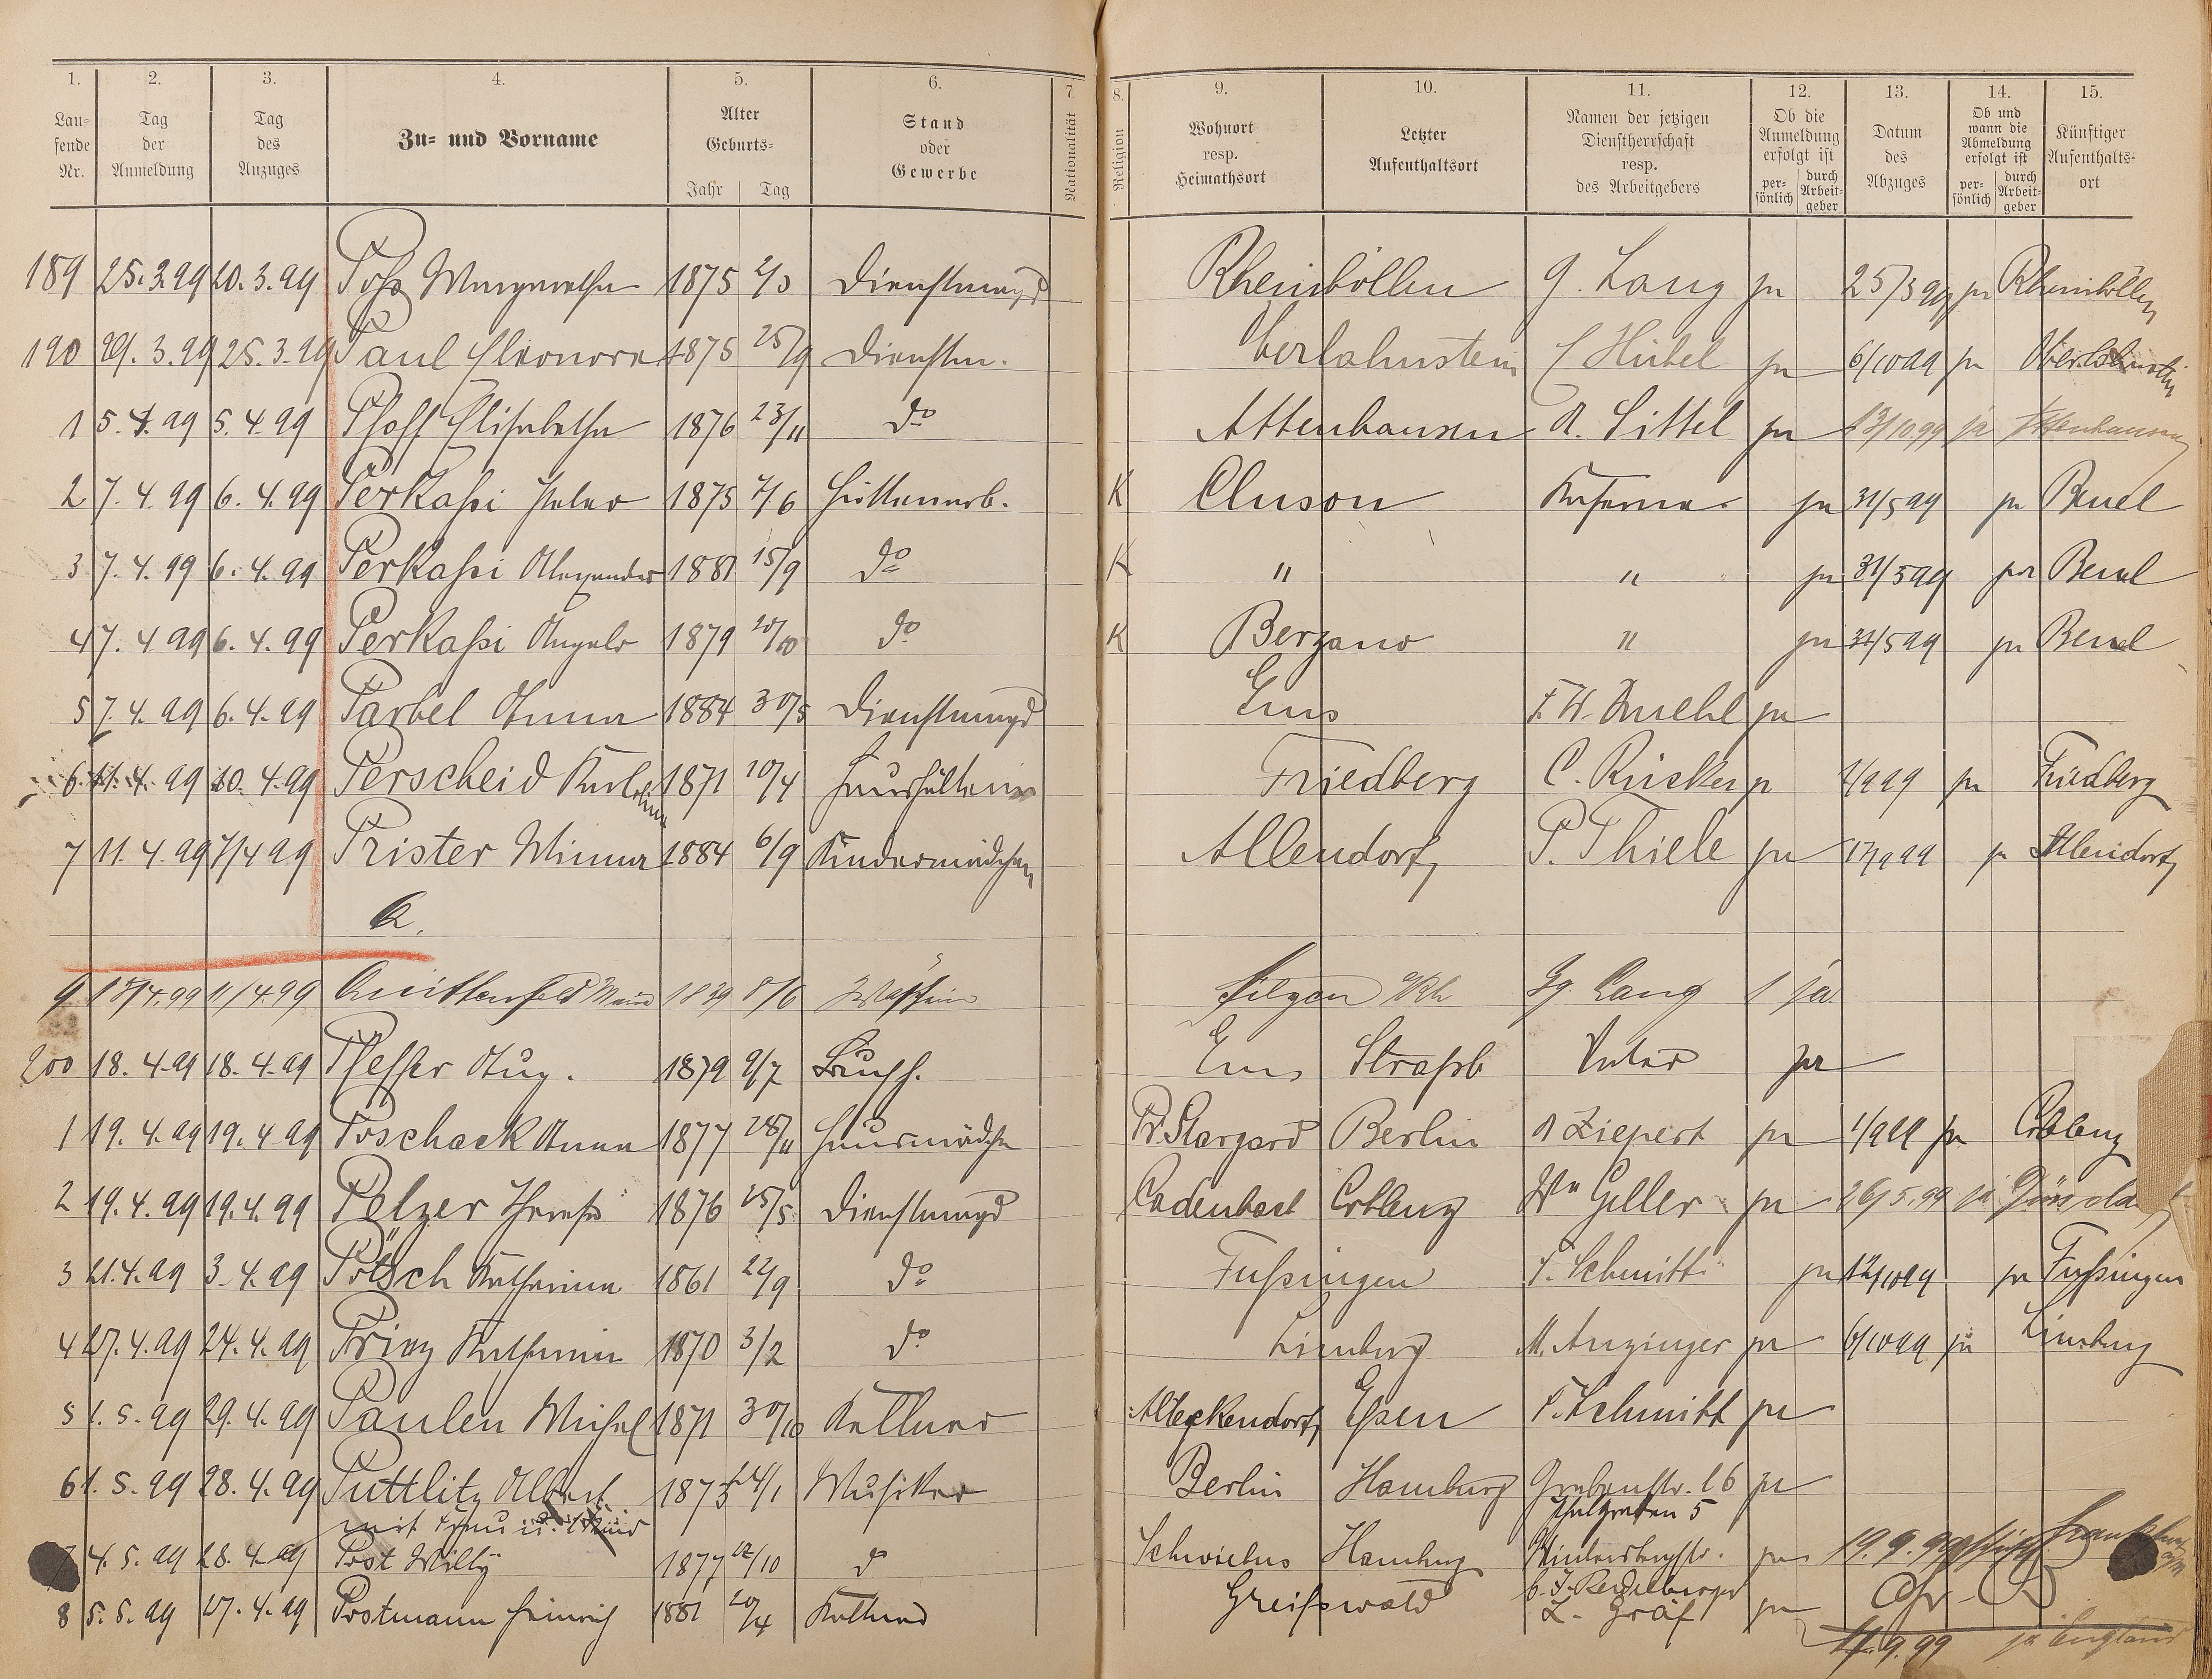 1. 2. 3. 4. 5. 6. 7. 8. 9. 10. 11. 12. 13. 14. 15.
Lau-
fende
Nr.
Tag
der
Anmeldung
Tag
des
Anzuges
Zu- und Vorname
Alter
Geburts-
Jahr Tag
Stand
oder
Gewerbe
Nationalität
Religion
Wohnort
resp.
Heimathsort
Letzter
Aufenthaltsort
Namen der jetzigen
Dienstherrschaft
resp.
des Arbeitgebers
Ob die
Anmeldung
erfolgt ist
per-
sönlich
durch
Arbeit-
geber
Datum
des
Abzuges
Ob und
wann die
Abmeldung
erfolgt ist
per-
sönlich
durch
Arbeit-
geber
Künftiger
Aufenthalts-
ort
189 25.3.99 20.3.99 Margaretha 1875 2/3 Dienstmagd Rheinböllen G. Lang ja 25/3 99 ja Rheinböllen
190 29.3.99 25.3.99 Paul Eleonore 1875 25/9 Dienstm. Oberlahnstein Hübel ja 6/10 99 ja Oberlahnstein
1 5.4.99 5.4.99 Elisabetha 1876 23/11 do Attenhausen A. Sittel ja 13/10.99 ja Attenhausen
2 7.4.99 6.4.99 Perkassi Peter 1875 7/6 Hüttenarb. K Cluson Kaserne ja 31/5 99 ja Beuel
3 7.4.99 6.4.99 Perkassi Alexander 1881 15/9 do K " " ja 31/5 99 ja Beuel
4 7.4.99 6.4.99 Perkassi Angelo 1879 10/10 do K Berzano " ja 31/5 99 ja Beuel
5 7.4.99 6.4.99 Parbel Anna 1884 30/5 Dienstmagd Ems F. W. ja
6 11.4.99 10.4.99 Perscheid 1871 10/4 Haushälterin Friedberg C. Rücker ja 1/9 99 ja Friedberg
7 11.4.99 7/4 99 Prister Minna 1884 6/9 Kindermädchen Allendorf P. Thiele ja 17/9 99 ja Allendorf
Q.
9 18/4.99 11/4.99 Quittenfeld 1839 8/6 Gg. Lang 1 ja
200 18.4.99 18.4.99 Pfeffer Aug. 1879 9/7 Ems Strassb Vater ja
1 19.4.99 19.4.99 Poschack Anna 1877 28/11 Hausmädchen Pr. Stargard Berlin A Ziepert ja 1/9 99 ja Coblenz
2 19.4.99 19.4.99 Pelzer Therese 1876 25/5 Dienstmagd Cadenbach Coblenz Ww Geller ja 26/5.99 ja
3 21.4.99 3.4.99 Pötsch Katharina 1861 22/9 do Fussingen P. Schmitt ja 12/10 99 ja Fussingen
4 27.4.99 24.4.99 Prinz Katharina 1870 3/2 do Limburg M. Anzinger ja 6/10 99 ja Limburg
5 1.5.99 29.4.99 Paulen Michel 1871 30/10 Kellner Alteckendorf Essen P. Schmitt ja
6 1.5.99 28.4.99 Puttlitz Albert 1873 24/1 Musiker Berlin Hamburg Grabenstr. 16 ja
mit Frau u. Kind
7 4.5.99 28.4.99 Post Willy 1877 12/10 do Schwiebus Hamburg ja 19.9.99
8 5.5.99 27.4.99 Postmann Heinrich 1881 20/4 Kellner Greifswald L. Gräf ja
11.9.99 ja England